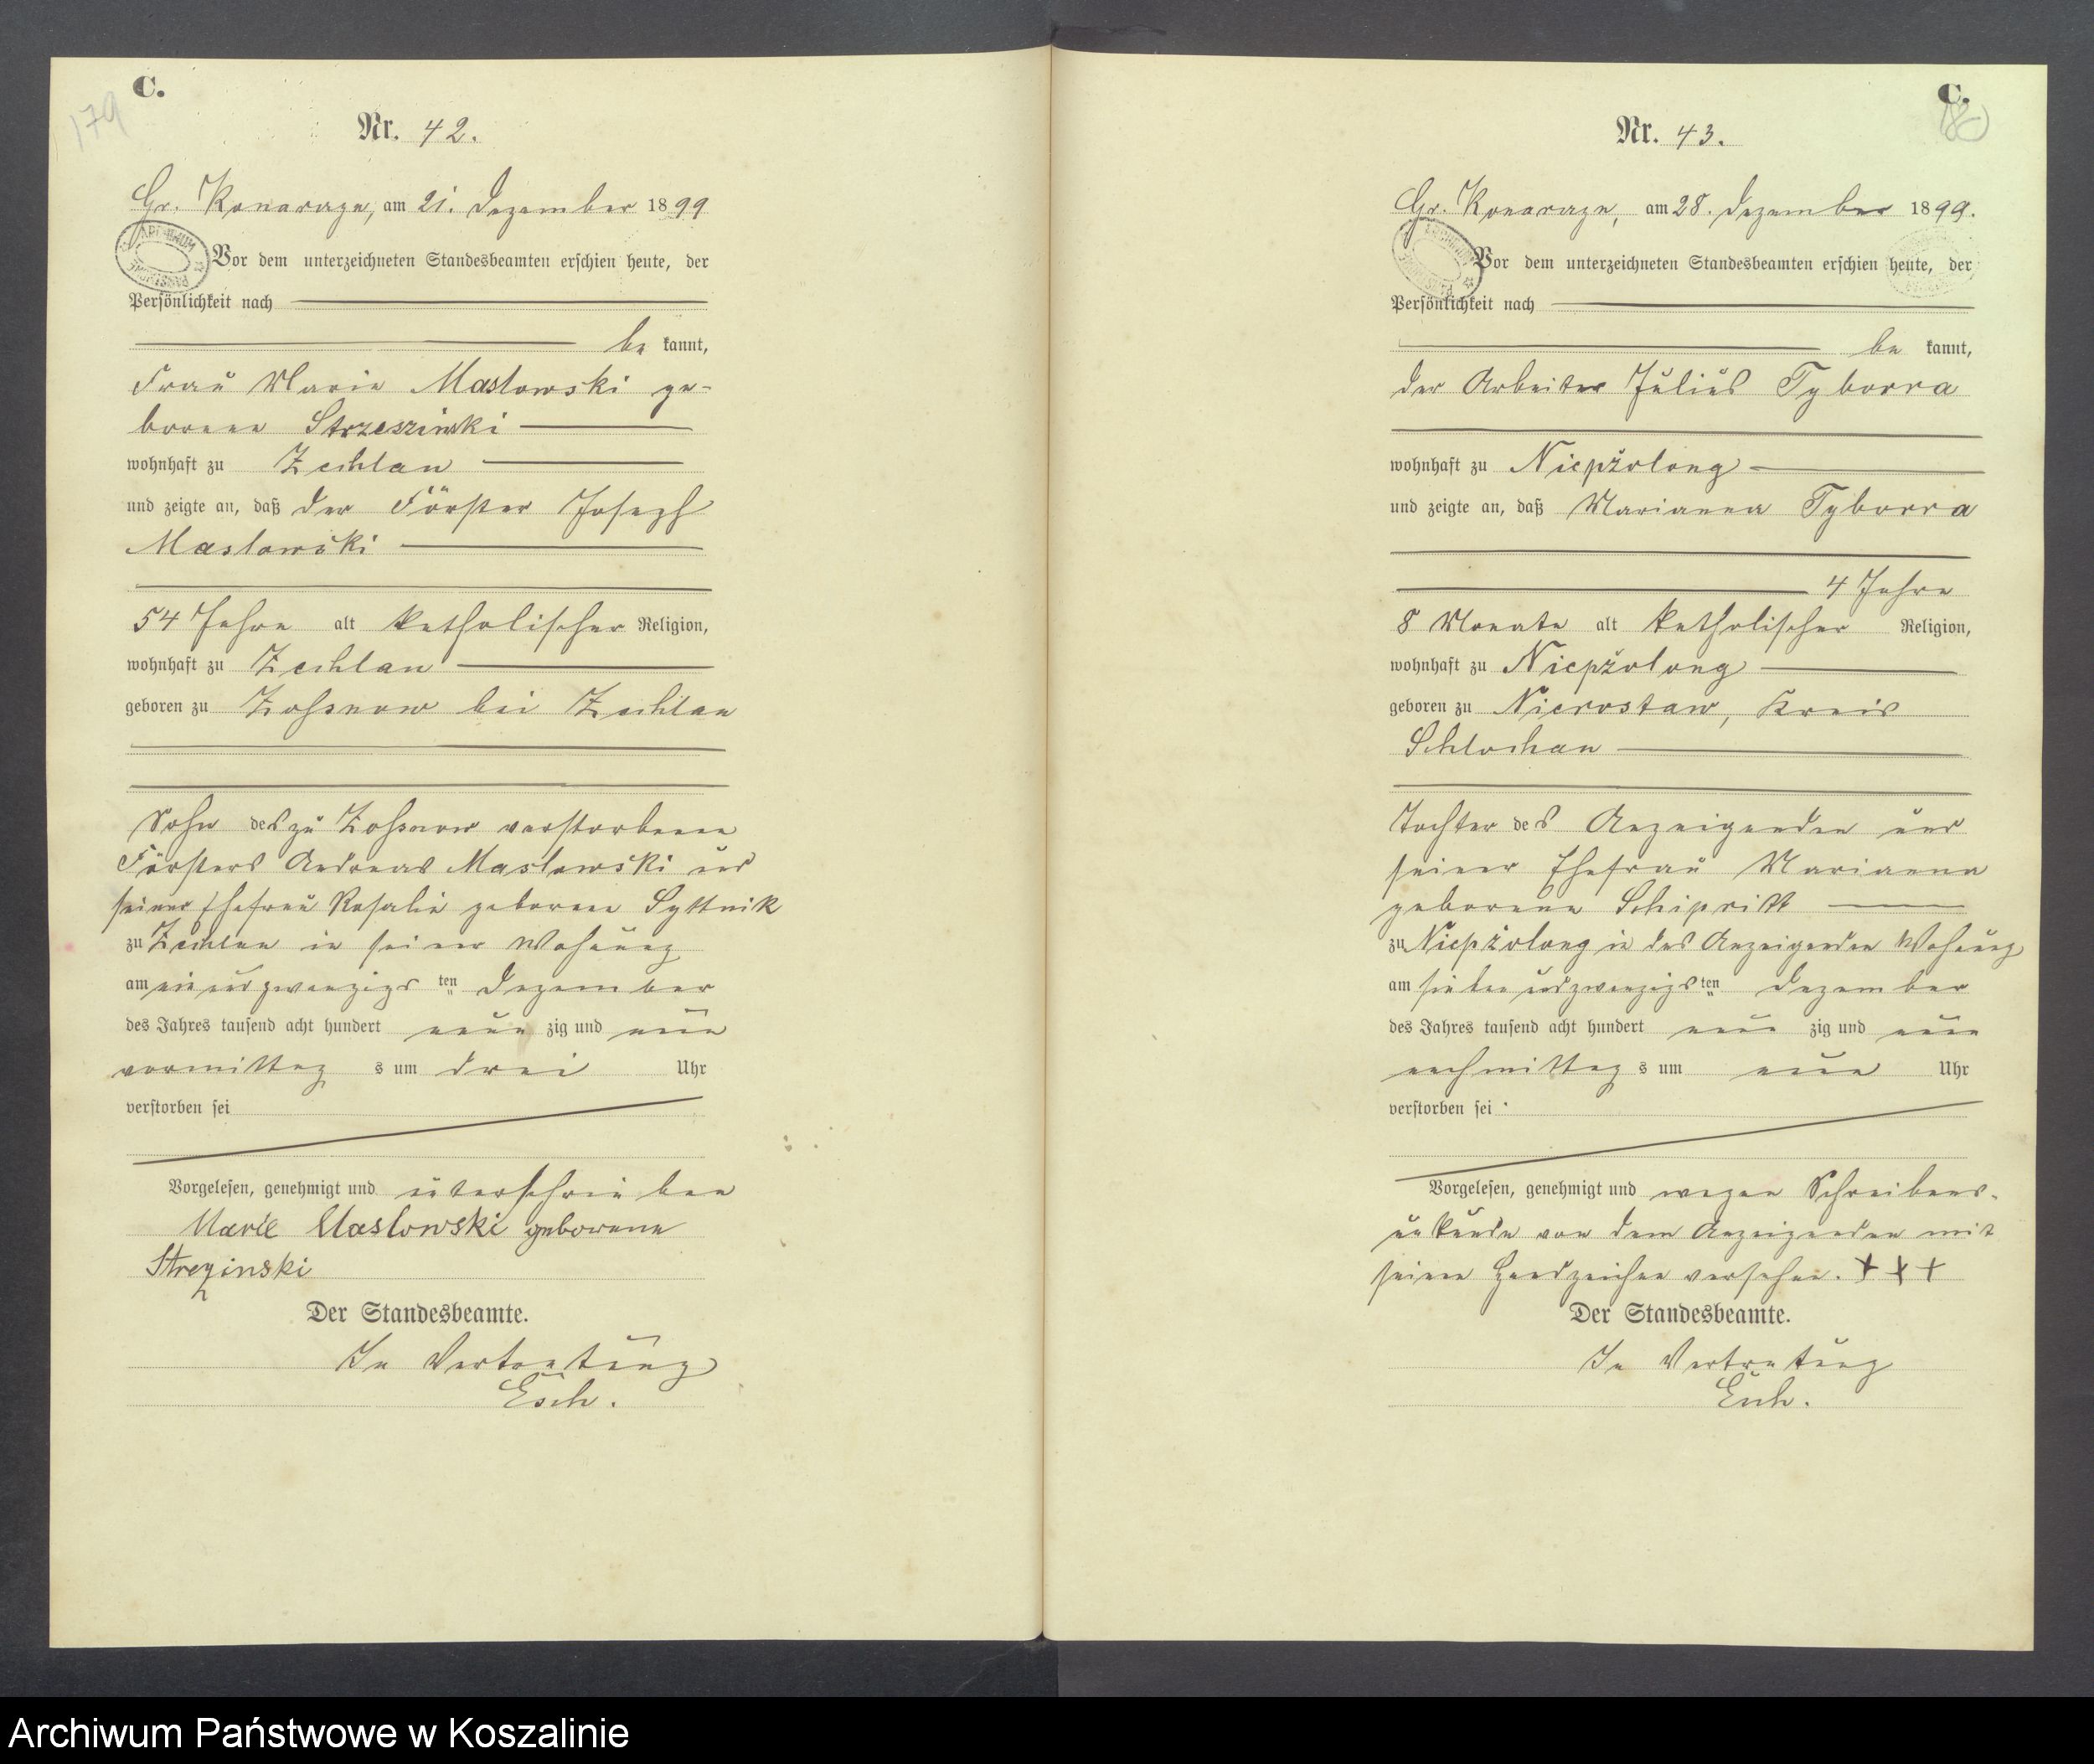 C.
179
Nr. 42.
Gr. Konarczyn, am 21. Dezember 1899
Vor dem unterzeichneten Standesbeamten erschien heute, der
Persönlichkeit nach
be kannt,
Frau Marie Maslowski ge-
borene Strzeszinski
wohnhaft zu Zechlau
und zeigte an, daß der Förster Joseph
Maslowski
54 Jahre alt katholischer Religion,
wohnhaft zu Zechlau
geboren zu Zossnow bei Zechlau
Sohn des zu Zossnow verstorbenen
Försters Andreas Maslowski und
seiner Ehefrau Rosalie geborene Syttnik
zu Zechlau in seiner Wohnung
am einundzwanzigs ten Dezember
des Jahres tausend acht hundert neun zig und neun
vormittag s um drei Uhr
verstorben sei
Vorgelesen, genehmigt und unterschrieben
Marie Maslowski geborene
Strezinski
Der Standesbeamte.
In Vertretung
Esch.
C.
180
Nr. 43.
Gr. Konarczyn, am 28. Dezember 1899.
Vor dem unterzeichneten Standesbeamten erschien heute, der
Persönlichkeit nach
be kannt,
der Arbeiter Julius Tyborra
wohnhaft zu Niepżolong
und zeigte an, daß Marianna Tyborra
4 Jahre
8 Monate alt katholischer Religion,
wohnhaft zu Niepżolong
geboren zu Nierostaw, Kreis
Schlochau
Tochter des Anzeigenden und
seiner Ehefrau Marianna
geborene Schipritt
zu Niepżolong in des Anzeigenden Wohnung
am siebenundzwanzigs ten Dezember
des Jahres tausend acht hundert neun zig und neun
nachmittag s um neun Uhr
verstorben sei
Vorgelesen, genehmigt und wegen Schreibens-
unkunde von dem Anzeigenden mit
seinen Handzeichen versehen. + + +
Der Standesbeamte.
In Vertretung
Esch.
Archiwum Państwowe w Koszalinie